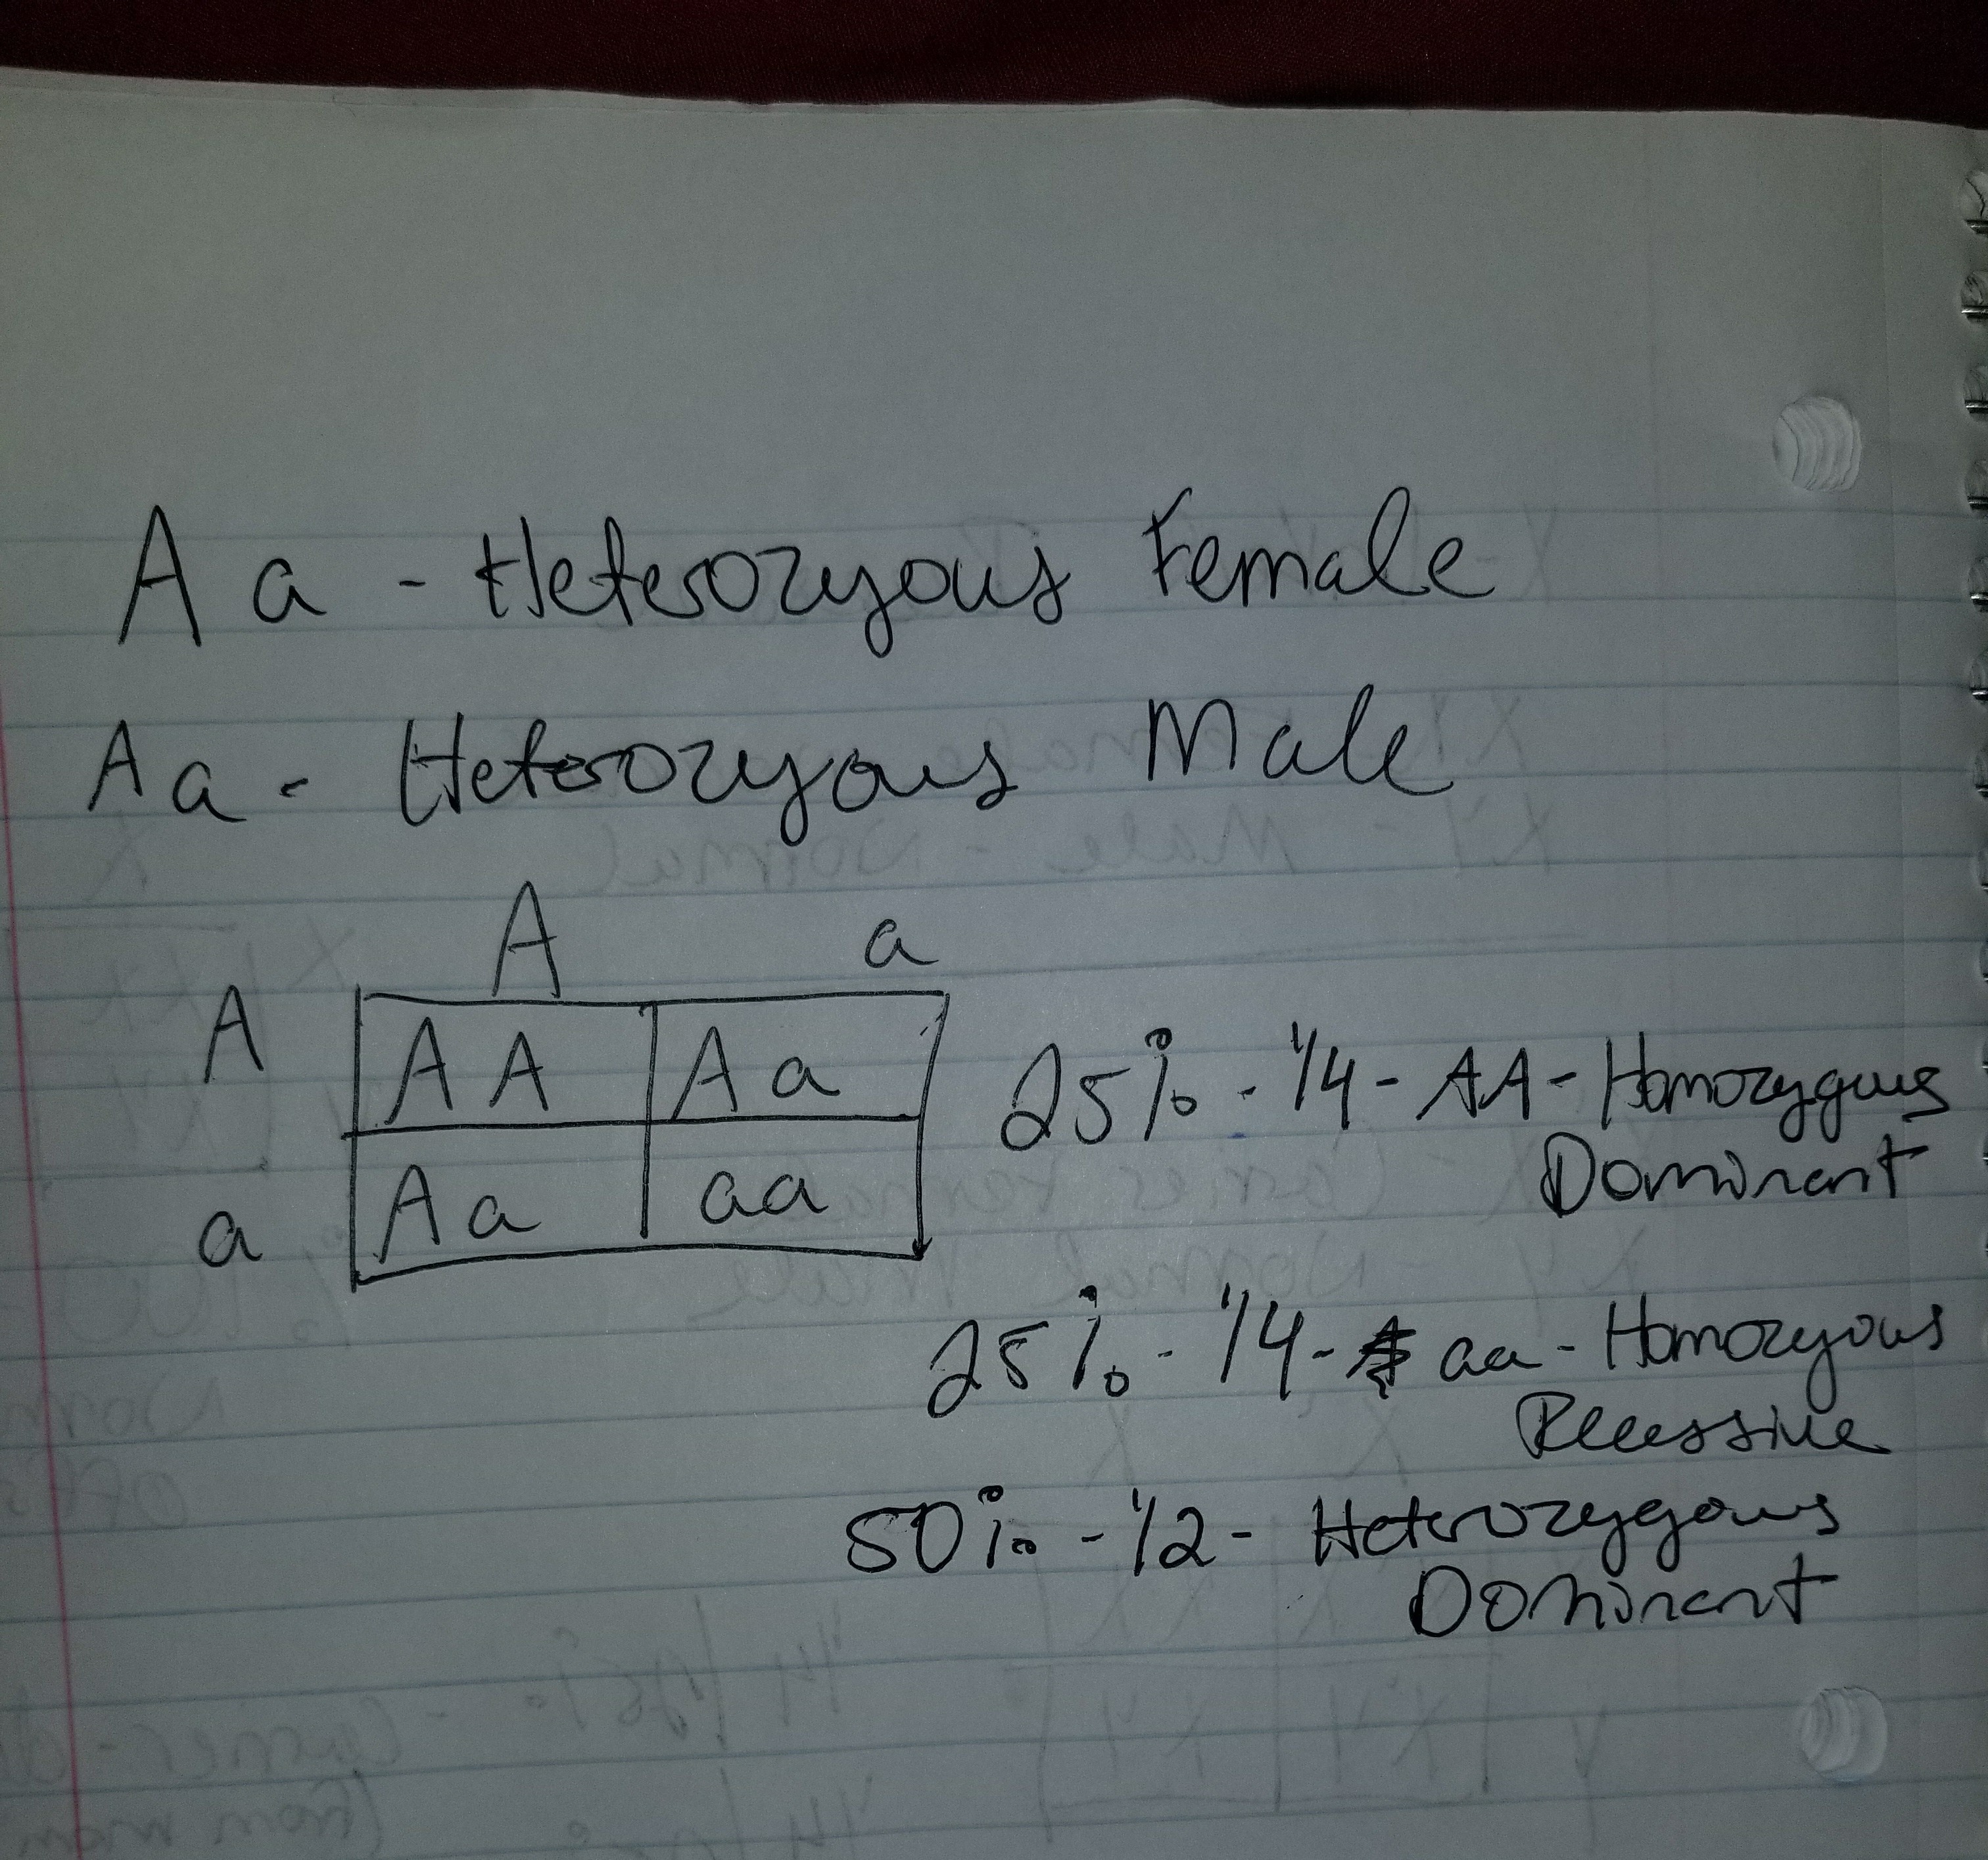 Aa - Heterozyous Female
Aa - Heterozyous Male
A a
A AA Aa
a Aa aa
25% - 1/4 - AA - Homozygous
Dominant
25% - 1/4 - aa - Homozyous
Recessive
50% - 1/2 - Heterozygous
Dominant